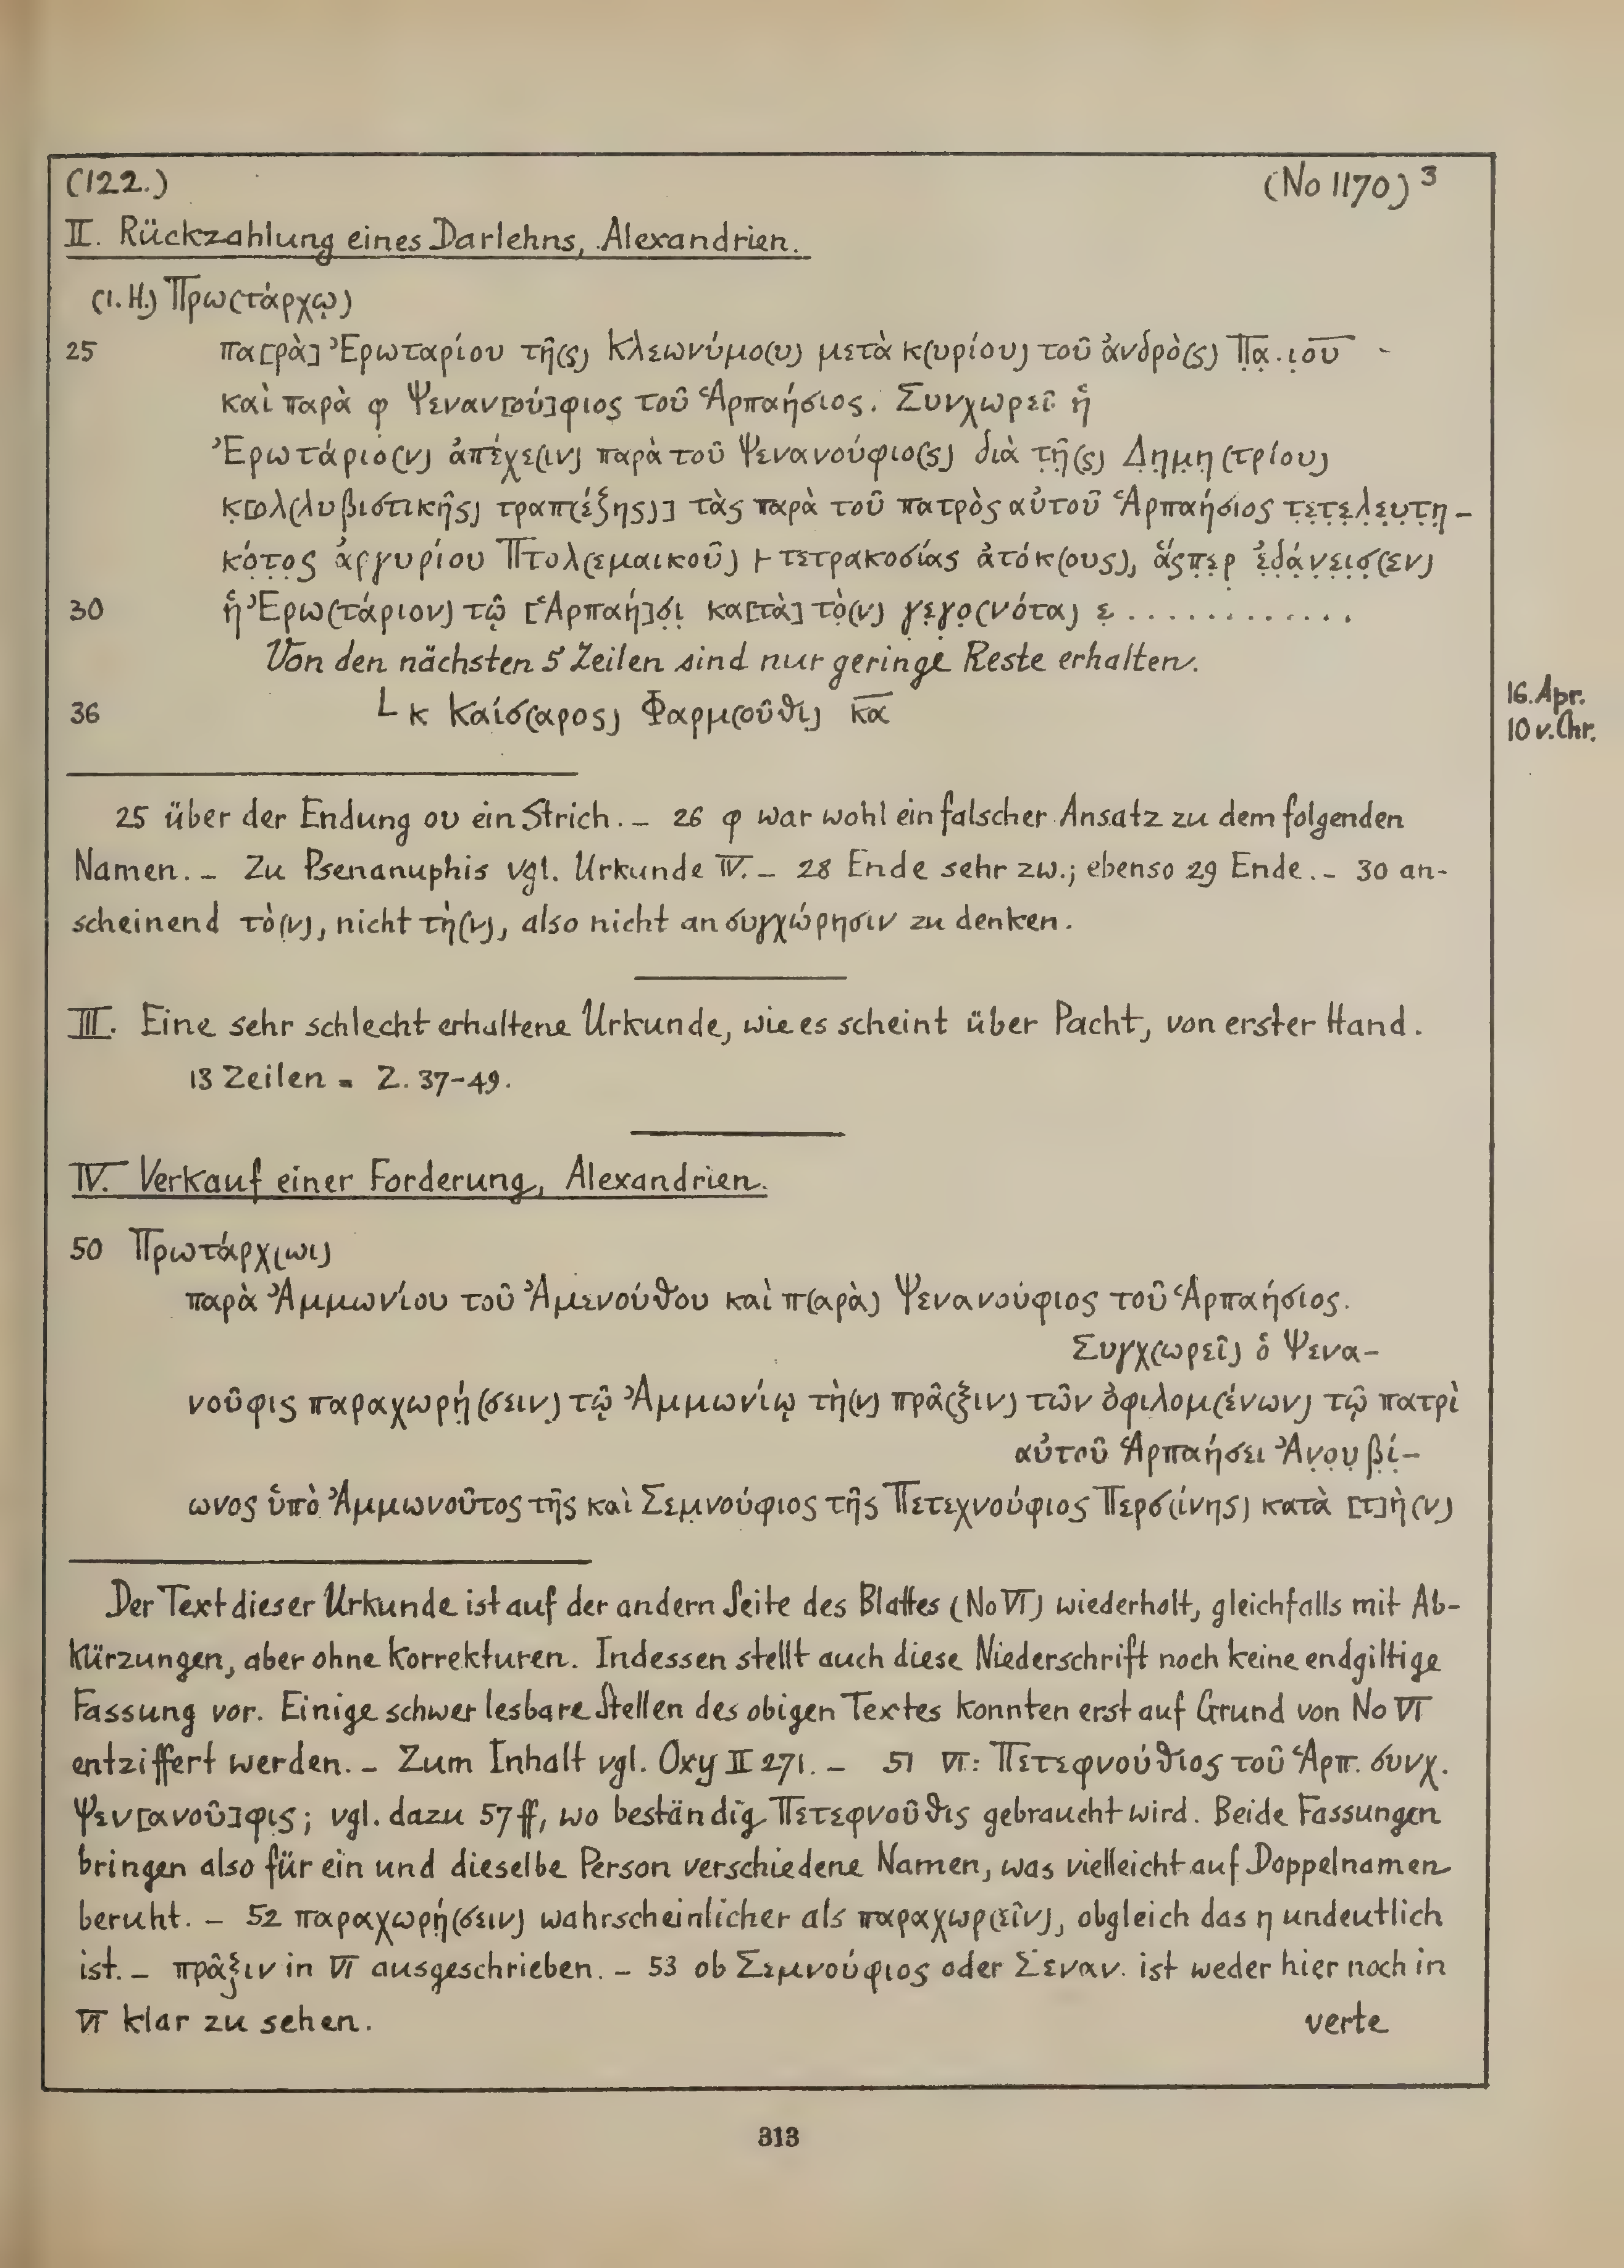 (122.) (No 1170) 3
II. Rückzahlung eines Darlehns, Alexandrien.
(1. H.) Πρω(τάρχῳ)
25 πα[ρὰ] Ἐρωταρίου τῆ(ς) Κλεωνύμο(υ) μετὰ κ(υρίου) τοῦ ἀνδρὸ(ς) Π̣α̣.ι̣ου
καὶ παρὰ φ Ψεναν[ού]φιος τοῦ Ἁρπαήσιος. Συνχωρεῖ ἡ
Ἐρωτάριο(ν) ἀπέχε(ιν) παρὰ τοῦ Ψενανούφιο(ς) διὰ τ̣ῆ̣(ς) Δ̣η̣μ̣η̣(τρίου)
κ̣[ολ(λυβιστικῆς) τραπ(έζης)] τὰς παρὰ τοῦ πατρὸς αὐτοῦ Ἁρπαήσιος τ̣ε̣τ̣ε̣λ̣ε̣υ̣τ̣η̣-
κ̣ό̣τ̣ο̣ς ἀργυρίου Πτολ(εμαικοῦ) 𐅂 τετρακοσίας ἀτόκ(ους), ἅ̣ς̣π̣ε̣ρ ἐ̣δ̣ά̣ν̣ε̣ι̣σ̣(εν)
30 ἡ Ἐρω(τάριον) τῷ [Ἁρπαή]σ̣ι̣ κα[τὰ] τὸ̣(ν) γ̣ε̣γ̣ο̣(νότα) ε̣ . . . . . . . . . . . .
Von den nächsten 5 Zeilen sind nur geringe Reste erhalten.
36 L κ Καίσ(αρος) Φαρμ(οῦθι) κ̅α̅
16. Apr.
10 v. Chr.
25 über der Endung ου ein Strich. – 26 φ war wohl ein falscher Ansatz zu dem folgenden
Namen. – Zu Psenanuphis vgl. Urkunde IV. – 28 Ende sehr zw.; ebenso 29 Ende. – 30 an-
scheinend τὸ̣(ν), nicht τὴ(ν), also nicht an συγχώρησιν zu denken.
III. Eine sehr schlecht erhaltene Urkunde, wie es scheint über Pacht, von erster Hand.
13 Zeilen = Z. 37-49.
IV. Verkauf einer Forderung, Alexandrien.
50 Πρωτάρχ(ωι)
παρὰ Ἀμμωνίου τοῦ Ἀμενούθου καὶ π(αρὰ) Ψενανούφιος τοῦ Ἁρπαήσιος.
Συγχ(ωρεῖ) ὁ Ψενα-
νοῦφις παραχωρή̣(σειν) τῷ Ἀμμωνίῳ τὴ(ν) πρᾶ(ξιν) τῶν ὀφιλομ(ένων) τῷ πατρὶ
αὐτοῦ Ἁρπαήσει Ἀν̣ο̣υ̣β̣ί̣-
ωνος ὑπὸ Ἀμμωνοῦτος τῆς καὶ Σεμ̣νούφιος τῆς Πετεχνούφιος Περσ(ίνης) κατὰ [τ]ὴ(ν)
Der Text dieser Urkunde ist auf der andern Seite des Blattes (No VI) wiederholt, gleichfalls mit Ab-
kürzungen, aber ohne Korrekturen. Indessen stellt auch diese Niederschrift noch keine endgiltige
Fassung vor. Einige schwer lesbare Stellen des obigen Textes konnten erst auf Grund von No VI
entziffert werden. – Zum Inhalt vgl. Oxy II 271. – 51 VI: Πετεφνούθιος τοῦ Ἁρπ. συνχ.
Ψεν[ανοῦ]φις; vgl. dazu 57 ff, wo beständig Πετεφνοῦθις gebraucht wird. Beide Fassungen
bringen also für ein und dieselbe Person verschiedene Namen, was vielleicht auf Doppelnamen
beruht. – 52 παραχωρή̣(σειν) wahrscheinlicher als παραχωρ(εῖν), obgleich das η undeutlich
ist. – πρᾶξιν in VI ausgeschrieben. – 53 ob Σεμνούφιος oder Σεναν. ist weder hier noch in
VI klar zu sehen. verte
313